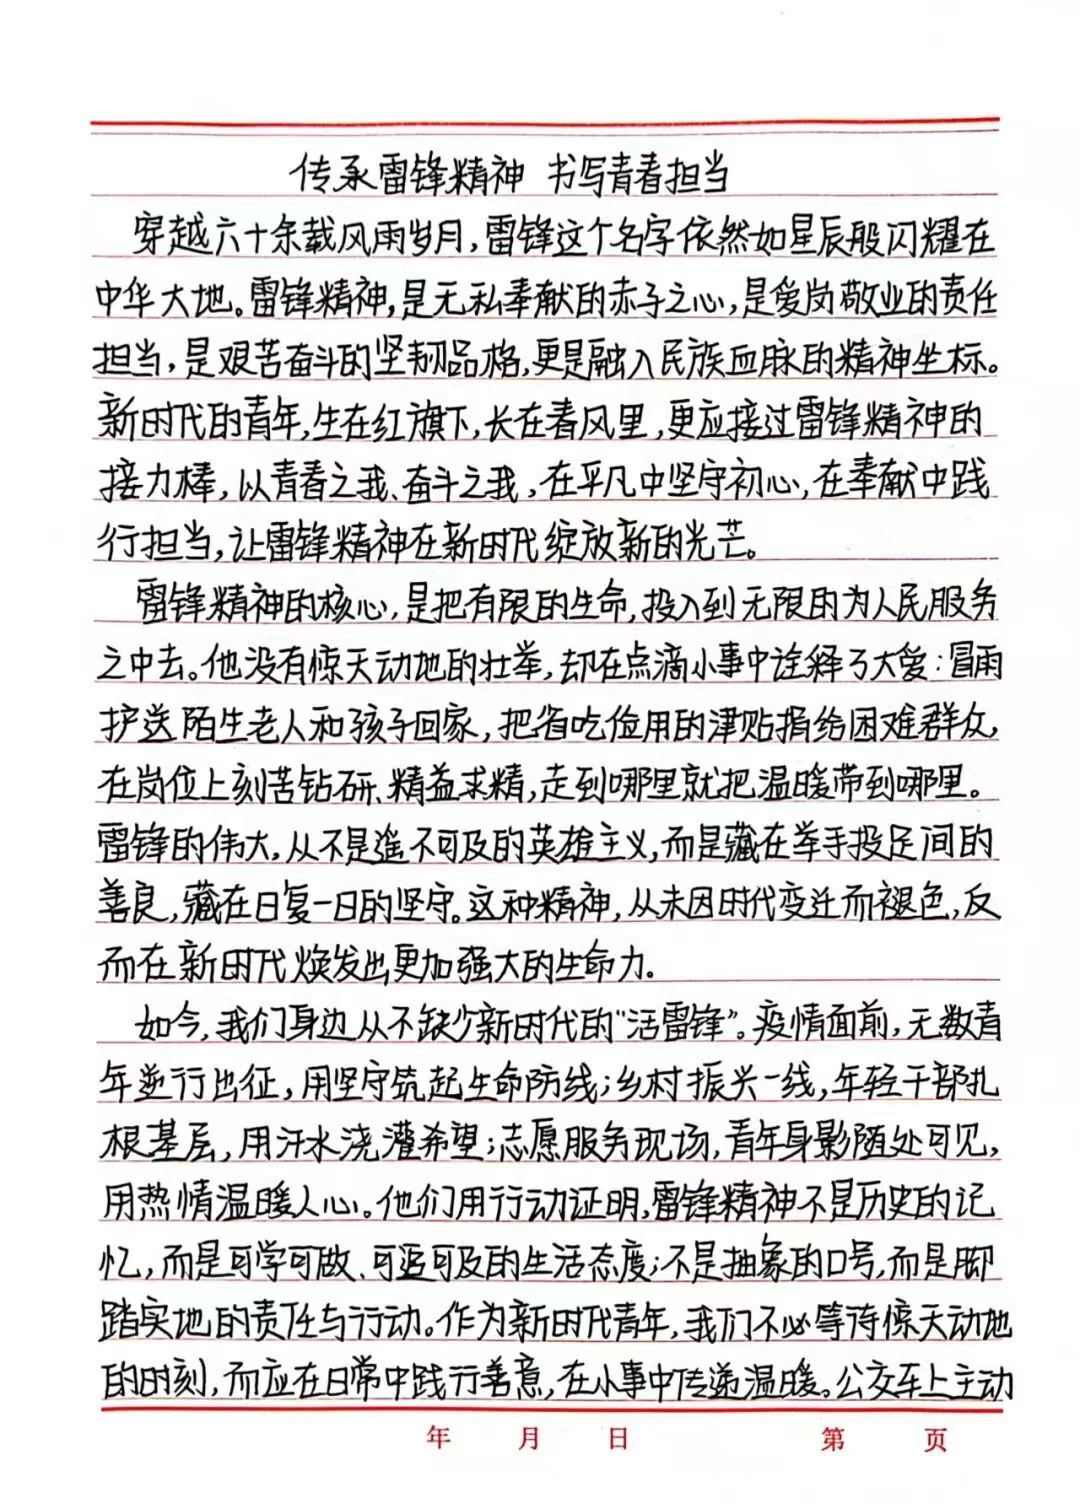 传承雷锋精神 书写青春担当
穿越六十余载风雨岁月，雷锋这个名字依然如星辰般闪耀在
中华大地。雷锋精神，是无私奉献的赤子之心，是爱岗敬业的责任
担当，是艰苦奋斗的坚韧品格，更是融入民族血脉的精神坐标。
新时代的青年，生在红旗下，长在春风里，更应接过雷锋精神的
接力棒，以青春之我、奋斗之我，在平凡中坚守初心，在奉献中践
行担当，让雷锋精神在新时代绽放新的光芒。
雷锋精神的核心，是把有限的生命，投入到无限的为人民服务
之中去。他没有惊天动地的壮举，却在点滴小事中诠释了大爱：冒雨
护送陌生老人和孩子回家，把省吃俭用的津贴捐给困难群众，
在岗位上刻苦钻研、精益求精，走到哪里就把温暖带到哪里。
雷锋的伟大，从不是遥不可及的英雄主义，而是藏在举手投足间的
善良，藏在日复一日的坚守。这种精神，从未因时代变迁而褪色，反
而在新时代焕发出更加强大的生命力。
如今，我们身边从不缺少新时代的“活雷锋”。疫情面前，无数青
年逆行出征，用坚守筑起生命防线；乡村振兴一线，年轻干部扎
根基层，用汗水浇灌希望；志愿服务现场，青年身影随处可见，
用热情温暖人心。他们用行动证明，雷锋精神不是历史的记
忆，而是可学可做、可追可及的生活态度；不是抽象的口号，而是脚
踏实地的责任与行动。作为新时代青年，我们不必等待惊天动地
的时刻，而应在日常中践行善意，在小事中传递温暖。公交车上主动
年 月 日 第 页